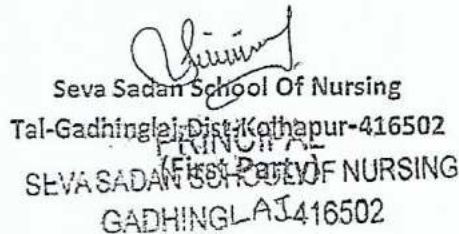 Seva Sadan School Of Nursing
Tal-Gadhinglaj,Dist-Kolhapur-416502
PRINCIPAL
(First Party)
SEVA SADAN SCHOOL OF NURSING
GADHINGLAJ 416502